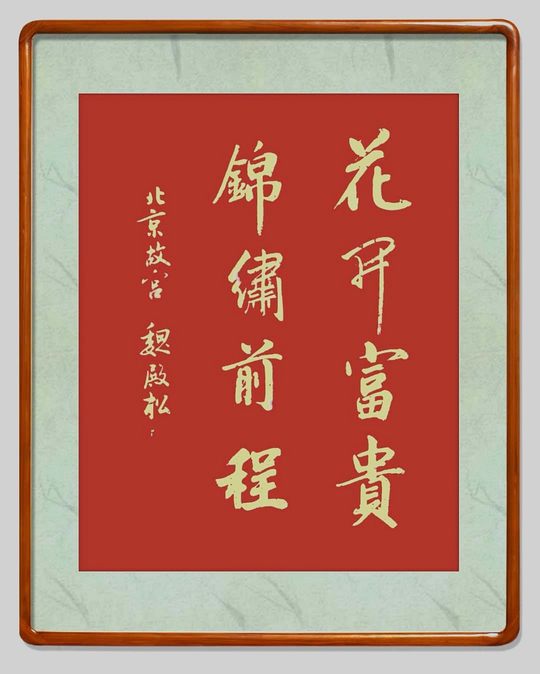 花開富貴
錦繡前程
北京故宮 魏殿松